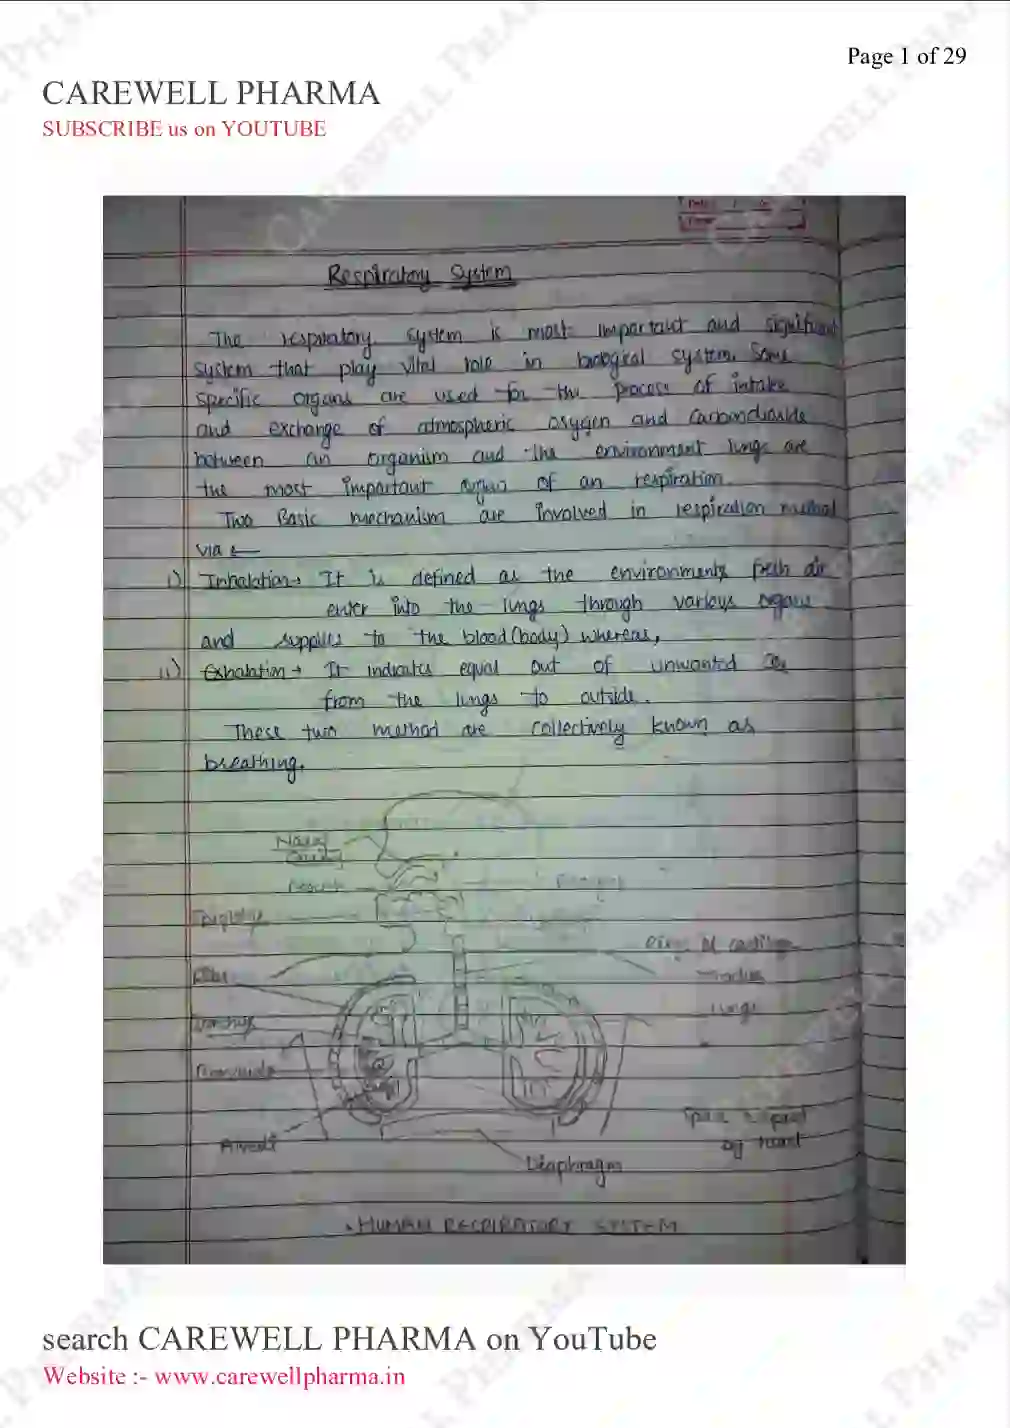 Page 1 of 29
CAREWELL PHARMA
SUBSCRIBE us on YOUTUBE
Respiratory System
The respiratory system is most important and significant
system that play vital role in biological system. Some
specific organs are used for the process of intake
and exchange of atmospheric oxygen and carbondioxide
between an organism and the environment lungs are
the most important organ of an respiration.
Two Basic mechanism are involved in respiration method
via :-
i) Inhalation → It is defined as the environments fresh air
enter into the lungs through various organs
and supplies to the blood (body) whereas,
ii) Exhalation → It indicates equal out of unwanted CO2
from the lungs to outside.
These two method are collectively known as
breathing.
Nasal
Cavity
Mouth
Ring of cartilage
Lungs
Bronchus
Alveoli
Space
by heart
Diaphragm
HUMAN RESPIRATORY SYSTEM
search CAREWELL PHARMA on YouTube
Website :- www.carewellpharma.in